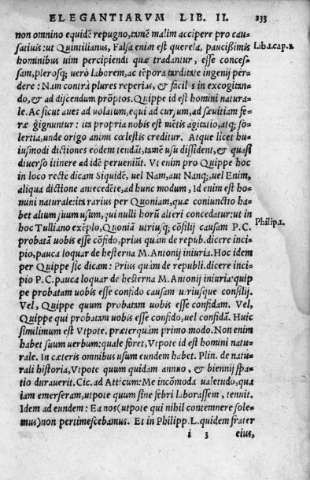 ELEGANTIARVM LIB. II. 133
non omnino equidē repugno, tamē malim accipere pro cau
satiuis: ut Quintilianus, Falsa enim est querela, paucißimis Lib.1.cap.1.
hominibus uim percipiendi quæ tradantur, esse conces-
sam, plerosq; uerò laborem, ac tēpora tarditate ingenij per
dere: Nam contrà plures reperias, & faciles in excogitan
do, & ad discendum prōptos. Quippe id est homini natura-
le. Ac sicut aues ad uolatum, equi ad cursum, ad sæuitiam fe-
ræ gignuntur: ita propria nobis est mētis agitatio, atq; so-
lertia, unde origo animi cœlestis creditur. Atque licet hu
iusmodi dictiones eodem tendāt, tamē usu dissident, & quasi
diuerso itinere ad idē perueniūt. Vt enim pro Quippe hoc
in loco recte dicam Siquidē, uel Nam, aut Nanq;, uel Enim,
aliqua dictione antecedēte, ad hunc modum, Id enim est ho-
mini naturale: ita rarius per Quoniam, quæ coniunctio ha-
bet alium suum usum, qui nulli horū alteri concedatur: ut in
hoc Tulliano exēplo, Quoniā utriusq; cōsilij causam P.C. Philip.1.
probatā uobis esse cōfido, prius quàm de repub. dicere inci-
pio, pauca loquar de hesterna M. Antonij iniuria. Hoc idem
per Quippe sic dicam: Prius quàm de republi. dicere inci-
pio P.C. pauca loquar de hesterna M. Antonij iniuria: quip
pe probatam uobis esse confido causam utriusque consilij.
Vel, Quippe quum probatam uobis esse confidam. Vel,
Quippe qui probatam uobis esse confido, uel confidā. Huic
simillimum est Vtpote, præterquàm primo modo. Non enim
habet suum uerbum: quale foret, Vtpote id est homini natu-
rale. In cæteris omnibus usum eundem habet. Plin. de natu-
rali historia, Vtpote quum quidam annuo, & biennij spa-
tio durauerit. Cic. ad Atticum: Me incōmoda ualetudo, qua
iam emerseram, utpote quum sine febri laborassem, tenuit.
Idem ad eundem: Ea nos (utpote qui nihil contemnere sole-
mus) non pertimescebamus. Et in Philipp. L. quidem frater
i 3 eius,